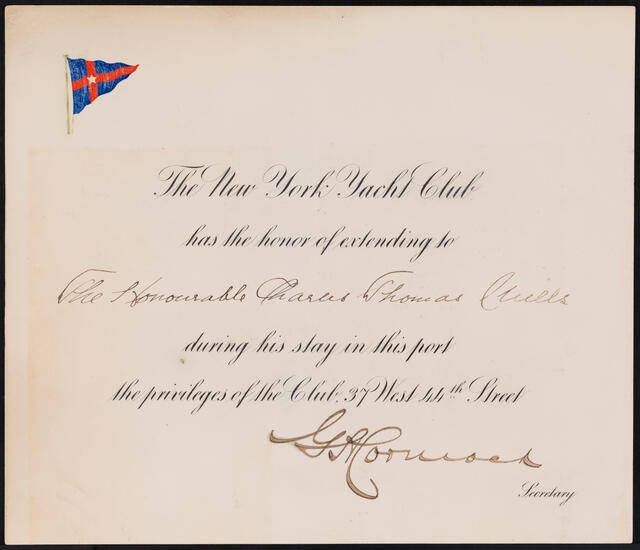 The New York Yacht Club
has the honor of extending to
The Honourable Charles Thomas Mills
during his stay in this port
the privileges of the Club, 37 West 44th Street
G A Cormack
Secretary